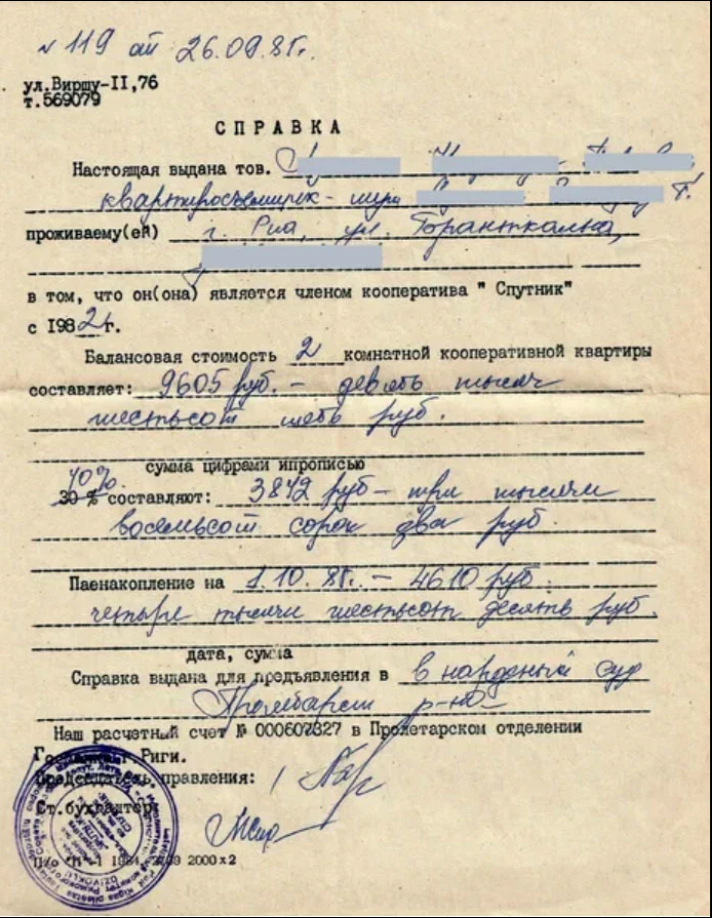 N 119 от 26.09.88г.
ул.Виршу-II,76
т.569079
СПРАВКА
Настоящая выдана тов.
квартиросъемщик - Г.
проживаему(ей) г. Рига, ул.
в том, что он(она) является членом кооператива " Спутник"
с 1982г.
Балансовая стоимость 2 комнатной кооперативной квартиры
составляет: 9605 руб. - девять тысяч
шестьсот пять руб.
сумма цифрами ипрописью
40%
30 % составляют: 3842 руб - три тысячи
восемьсот сорок два руб.
Паенакопление на 1.10.88г. - 4610 руб.
четыре тысячи шестьсот десять руб.
дата, сумма
Справка выдана для предъявления в в народный суд
р-на
Наш расчетный счет № 000607327 в Пролетарском отделении
Риги.
Председатель правления:
Ст.бухгалтер
2000x2